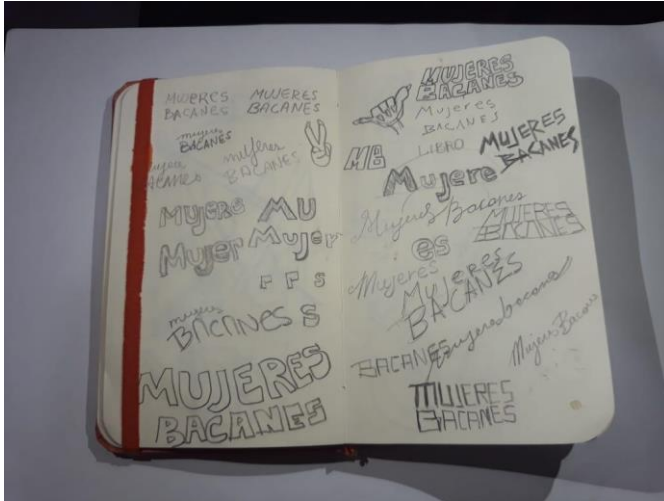 MUJERES
BACANES
MUJERES
BACANES
mujeres
BACANES
mujeres
ACANES
mujeres
BACANES
Mujere
MU
Mujer
Mujer
F F S
mujeres
BACANES S
MUJERES
BACANES
MUJERES
BACANES
Mujeres
BACANES
LIBRO
MB
MUJERES
BACANES
Mujere
Mujeres Bacanes
MUJERES
BACANES
es
Mujeres
Mujeres
BACANES
BACANES
Mujeres bacanes
Mujeres Bacanes
MUJERES
BACANES